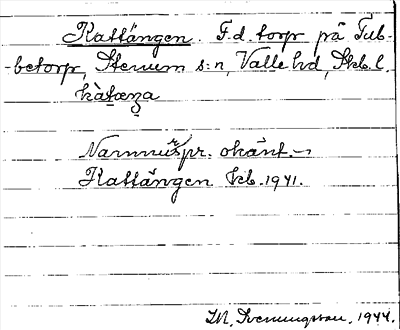 Kattängen. F.d. torp på Tub-
-betorp, Stenum s:n, Valle hd, Skb. l.
kàtæŋa
Namnurspr. okänt. –
Kattängen kb. 1941.
M. Svenningsson. 1944.